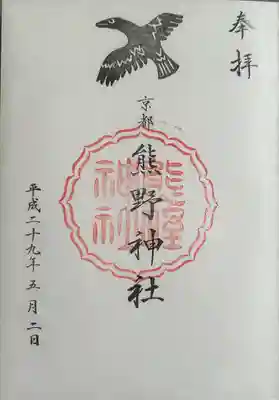 奉拝
京都
熊野神社
熊野神社
平成二十九年五月二日